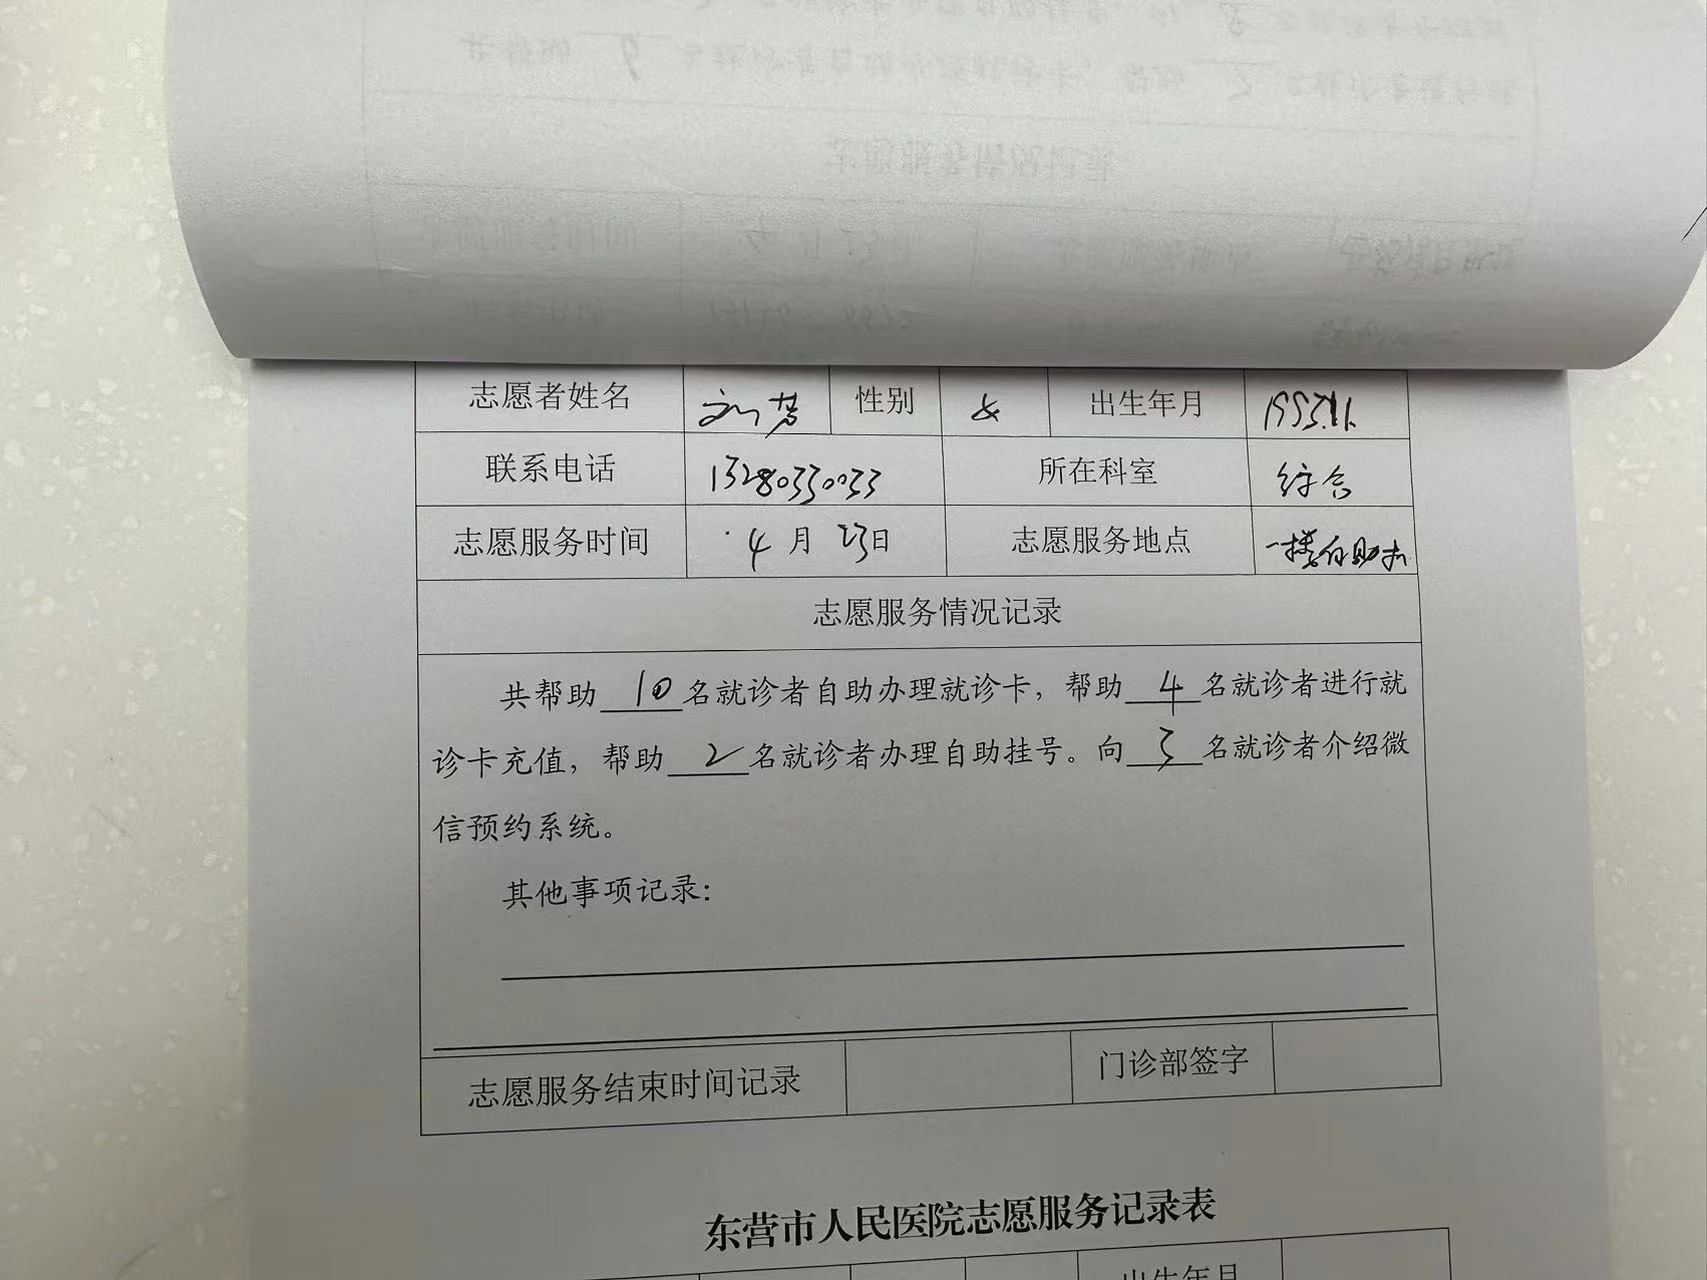 志愿服务情况记录
志愿者姓名 刘芳 性别 女 出生年月
联系电话 13280330033 所在科室 综合
志愿服务时间 4月23日 志愿服务地点 一楼自助机
志愿服务情况记录
共帮助 10 名就诊者自助办理就诊卡，帮助 4 名就诊者进行就
诊卡充值，帮助 2 名就诊者办理自助挂号。向 3 名就诊者介绍微
信预约系统。
其他事项记录：
志愿服务结束时间记录 门诊部签字
东营市人民医院志愿服务记录表
出生年月